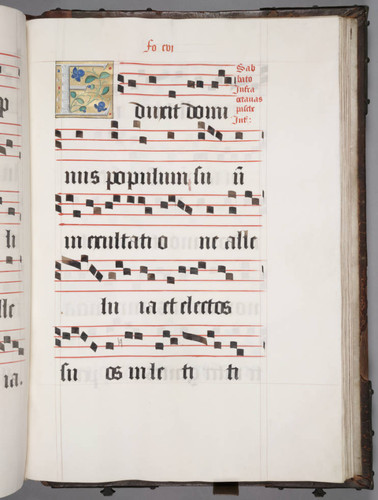 fo cvi
Sab
bato
Infra
octauas
pasce
Int:
E duxit domi
nus populum su ū
in exultati o ne alle
lu ia et electos
su os in le ti ti
li
lle
ia.